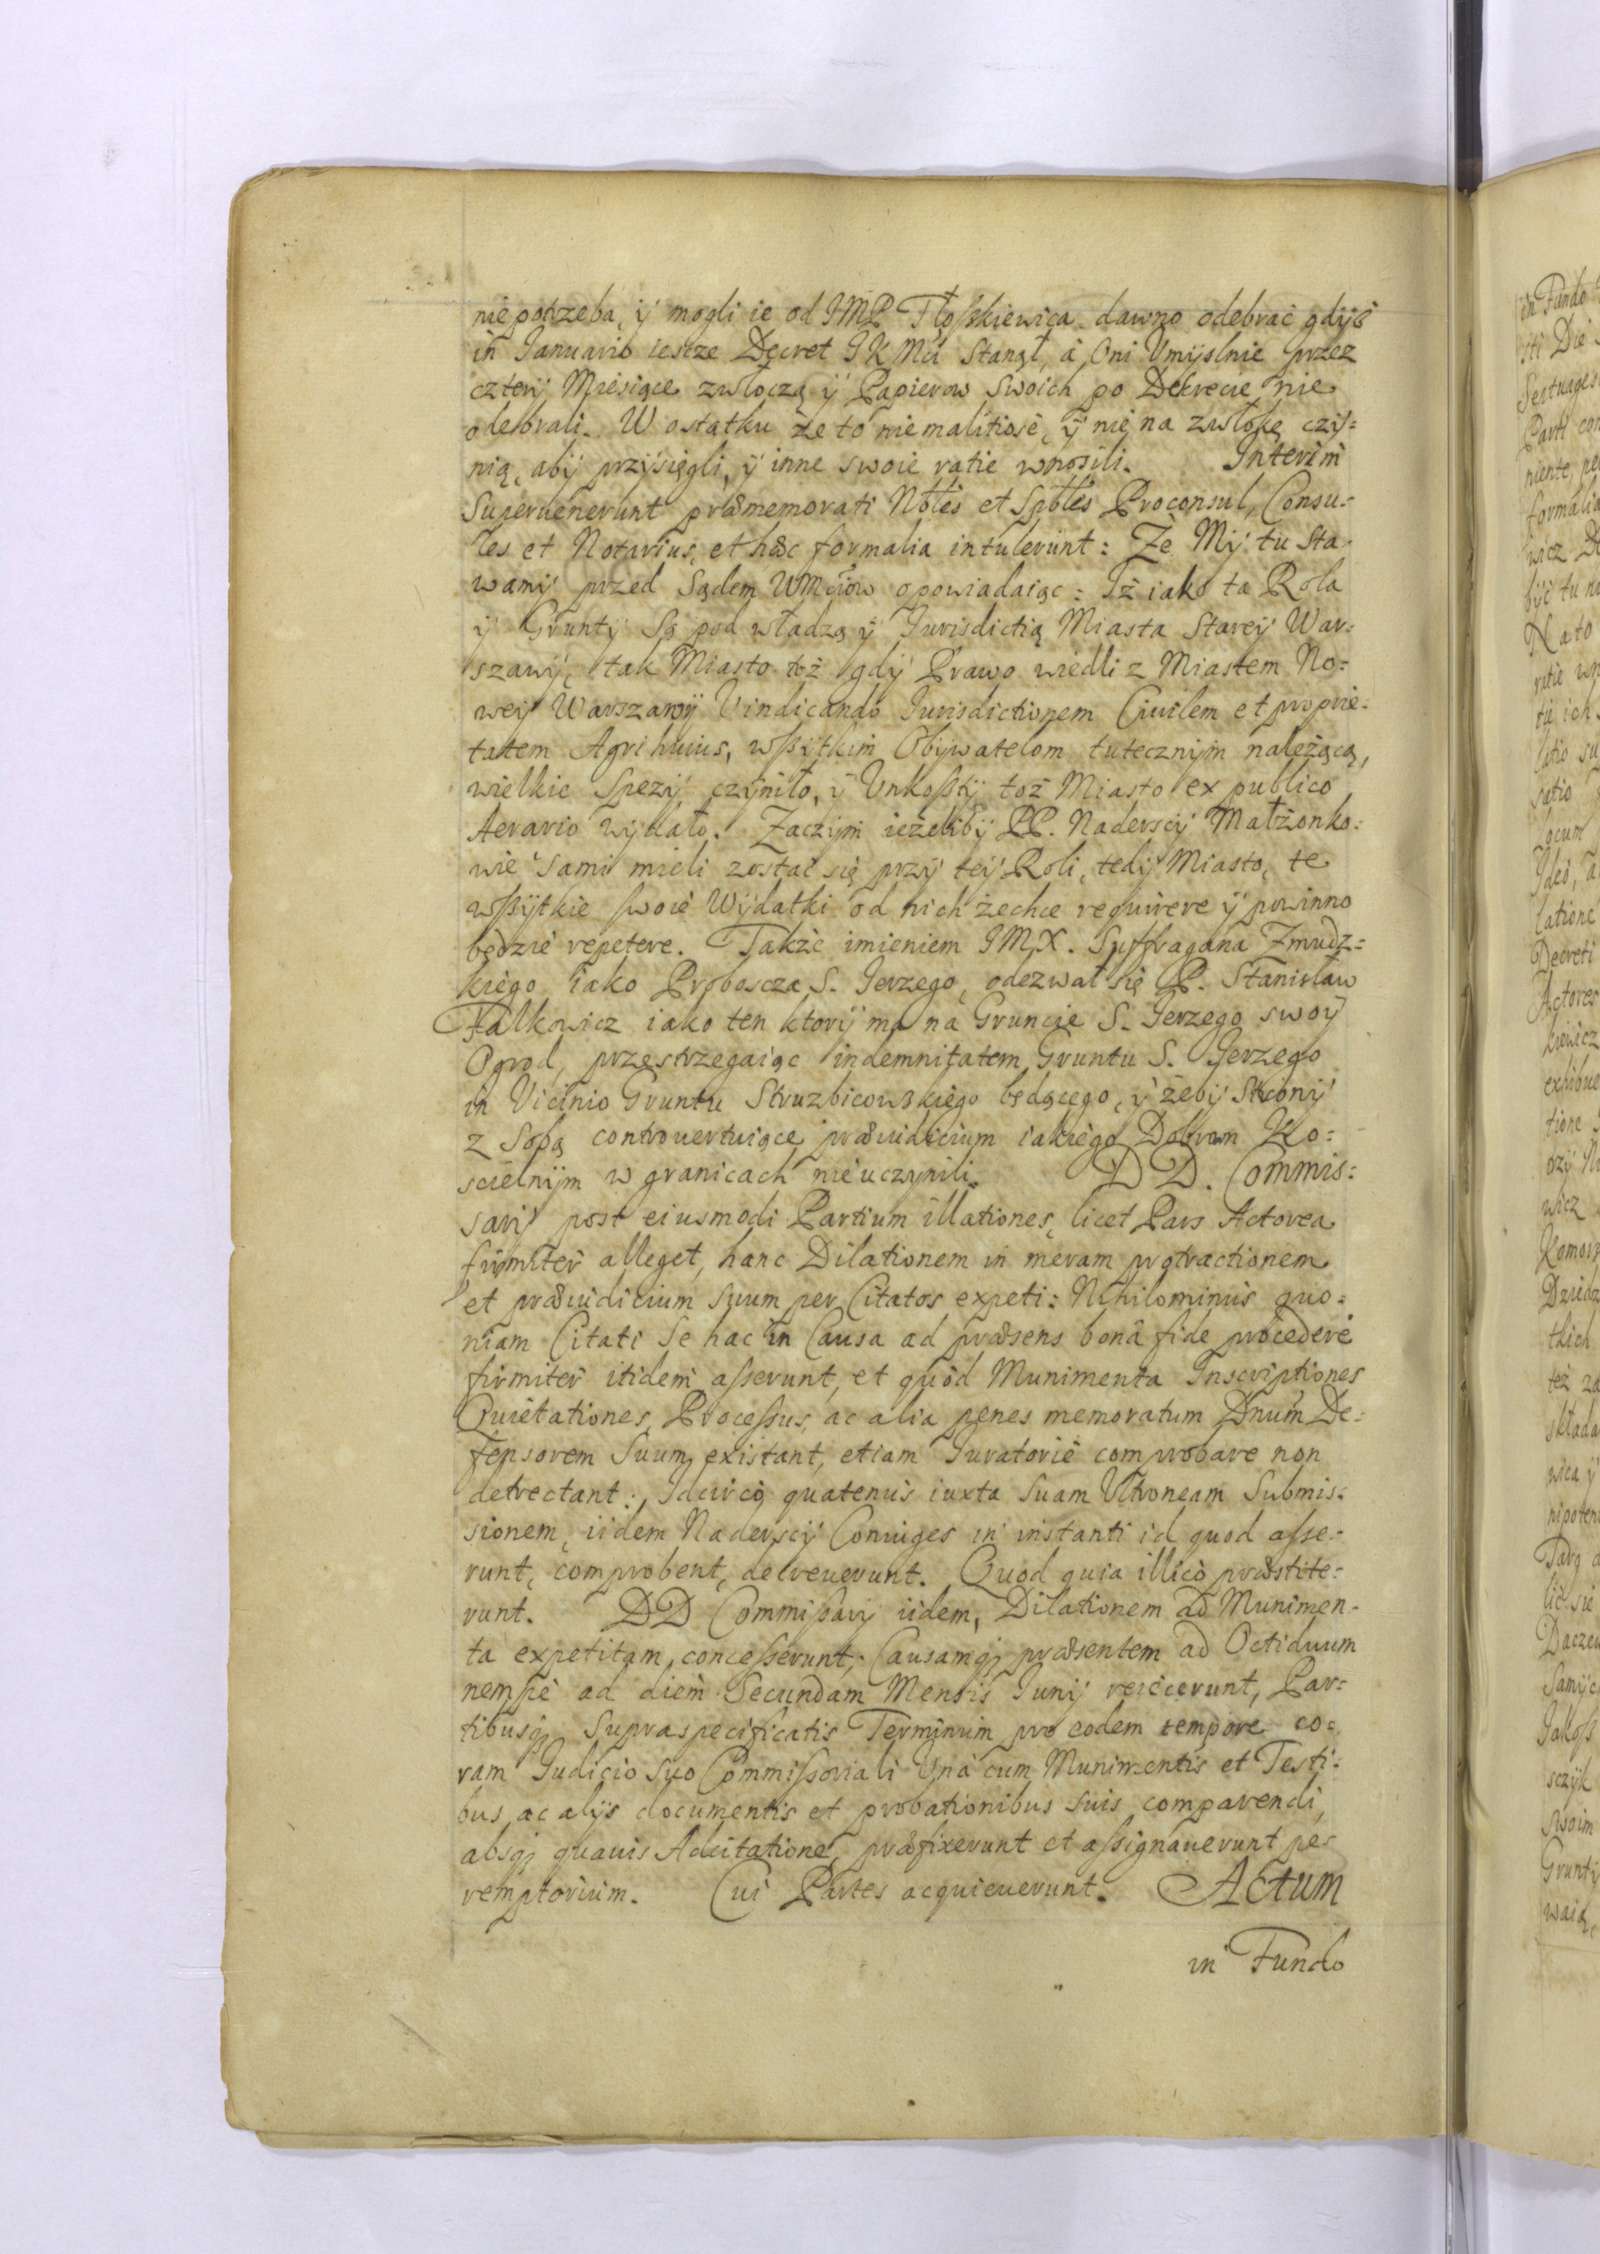 nie potrzeba, ÿ mogli ie od JMP Tłosskiewica dawno odebrać gdÿż
in Januario iescze Decret JK Mći stanął, à Oni Umÿslnie przez
czterÿ Miesiące zwłoczą ÿ Papierow swoich po Dekrecie nie
odebrali. W ostatku że to nie malitiosè, ÿ nie na zwłokę czÿ=
nią, abÿ przÿsięgli, ÿ inne swoie ratie wnosili. Interim
Superuenerunt præmemorati Nobles et Spbles Proconsul, Consu=
les et Notarius, et hæc formalia intulerunt: Że Mÿ tu sta=
wamÿ przed Sądem WMciow opowiadaiąc: Iż iako ta Rola
ÿ Gruntÿ są pod władzą ÿ Jurisdictią Miasta Stareÿ War=
szawÿ, tak Miasto toż gdÿ Prawo wiedli z Miastem No=
weÿ Warszawÿ Vindicando Jurisdictionem Ciuilem et proprie=
tatem Agri huius, wssÿtkim Obÿwatelom tutecznÿm należącą,
wielkie Spezÿ czÿniło, ÿ Unkosstÿ toż Miasto ex publico
Aerario wÿdało. Zaczÿm ieżelibÿ PP. Naderscÿ Małżonko=
wie sami mieli zostać się przÿ teÿ Roli, tedÿ Miasto, te
wssÿtkie swoie Wÿdatki od nich żechce requirere ÿ powinno
będzie repetere. Także imieniem JMX. Suffragana Zmudz=
kiego iako Proboscza S. Jerzego, odezwał się P. Stanisław
Falkowicz iako ten ktorÿ ma na Gruncie S. Jerzego swoÿ
Ogrod, przestrzegaiąc indemnitatem Gruntu S. Jerzego
in Vicinio Gruntu Struzbicowskiego będącego, ÿ żebÿ Stronÿ
z sobą controuertuiące præiudicium iakiego Dobrom Ko=
scielnÿm w granicach nie uczynili. DD. Commis=
sarij post eiusmodi Partium illationes, licet Pars Actorea
firmiter alleget, hanc Dilationem in meram protractionem
et præiudicium suum per Citatos expeti: Nihilominus quo=
niam Citati se hac in Causa ad præsens bonâ fide procedere
firmiter itidem asserunt, et quòd Munimenta Inscriptiones
Quietationes, Processus, ac alia penes memoratum Dnum De=
fensorem suum existant, etiam Juratoriè comprobare non
detrectant: Idcircò quatenus iuxta suam Ultroneam Submis=
sionem, iidem Naderscÿ Coniuges in instanti id quod asse=
runt, comprobent, decreuerunt. Quod quia illicò præstite=
runt. DD Commissarij iidem, Dilationem ad Munimen=
ta expetitam concesserunt; Causamq; præsentem ad Octiduum
nempè ad diem Secundam Mensis Junij reiecerunt, Par=
tibusq; supraspecificatis Terminum pro eodem tempore co=
ram Judicio suo Commissoriali Unà cum Munimentis et Testi=
bus ac alijs documentis et probationibus suis comparendi,
absq; quauis Adcitatione, præfixerunt et assignauerunt pe=
remptorium. Cui Partes acquieuerunt. Actum
in Fundo